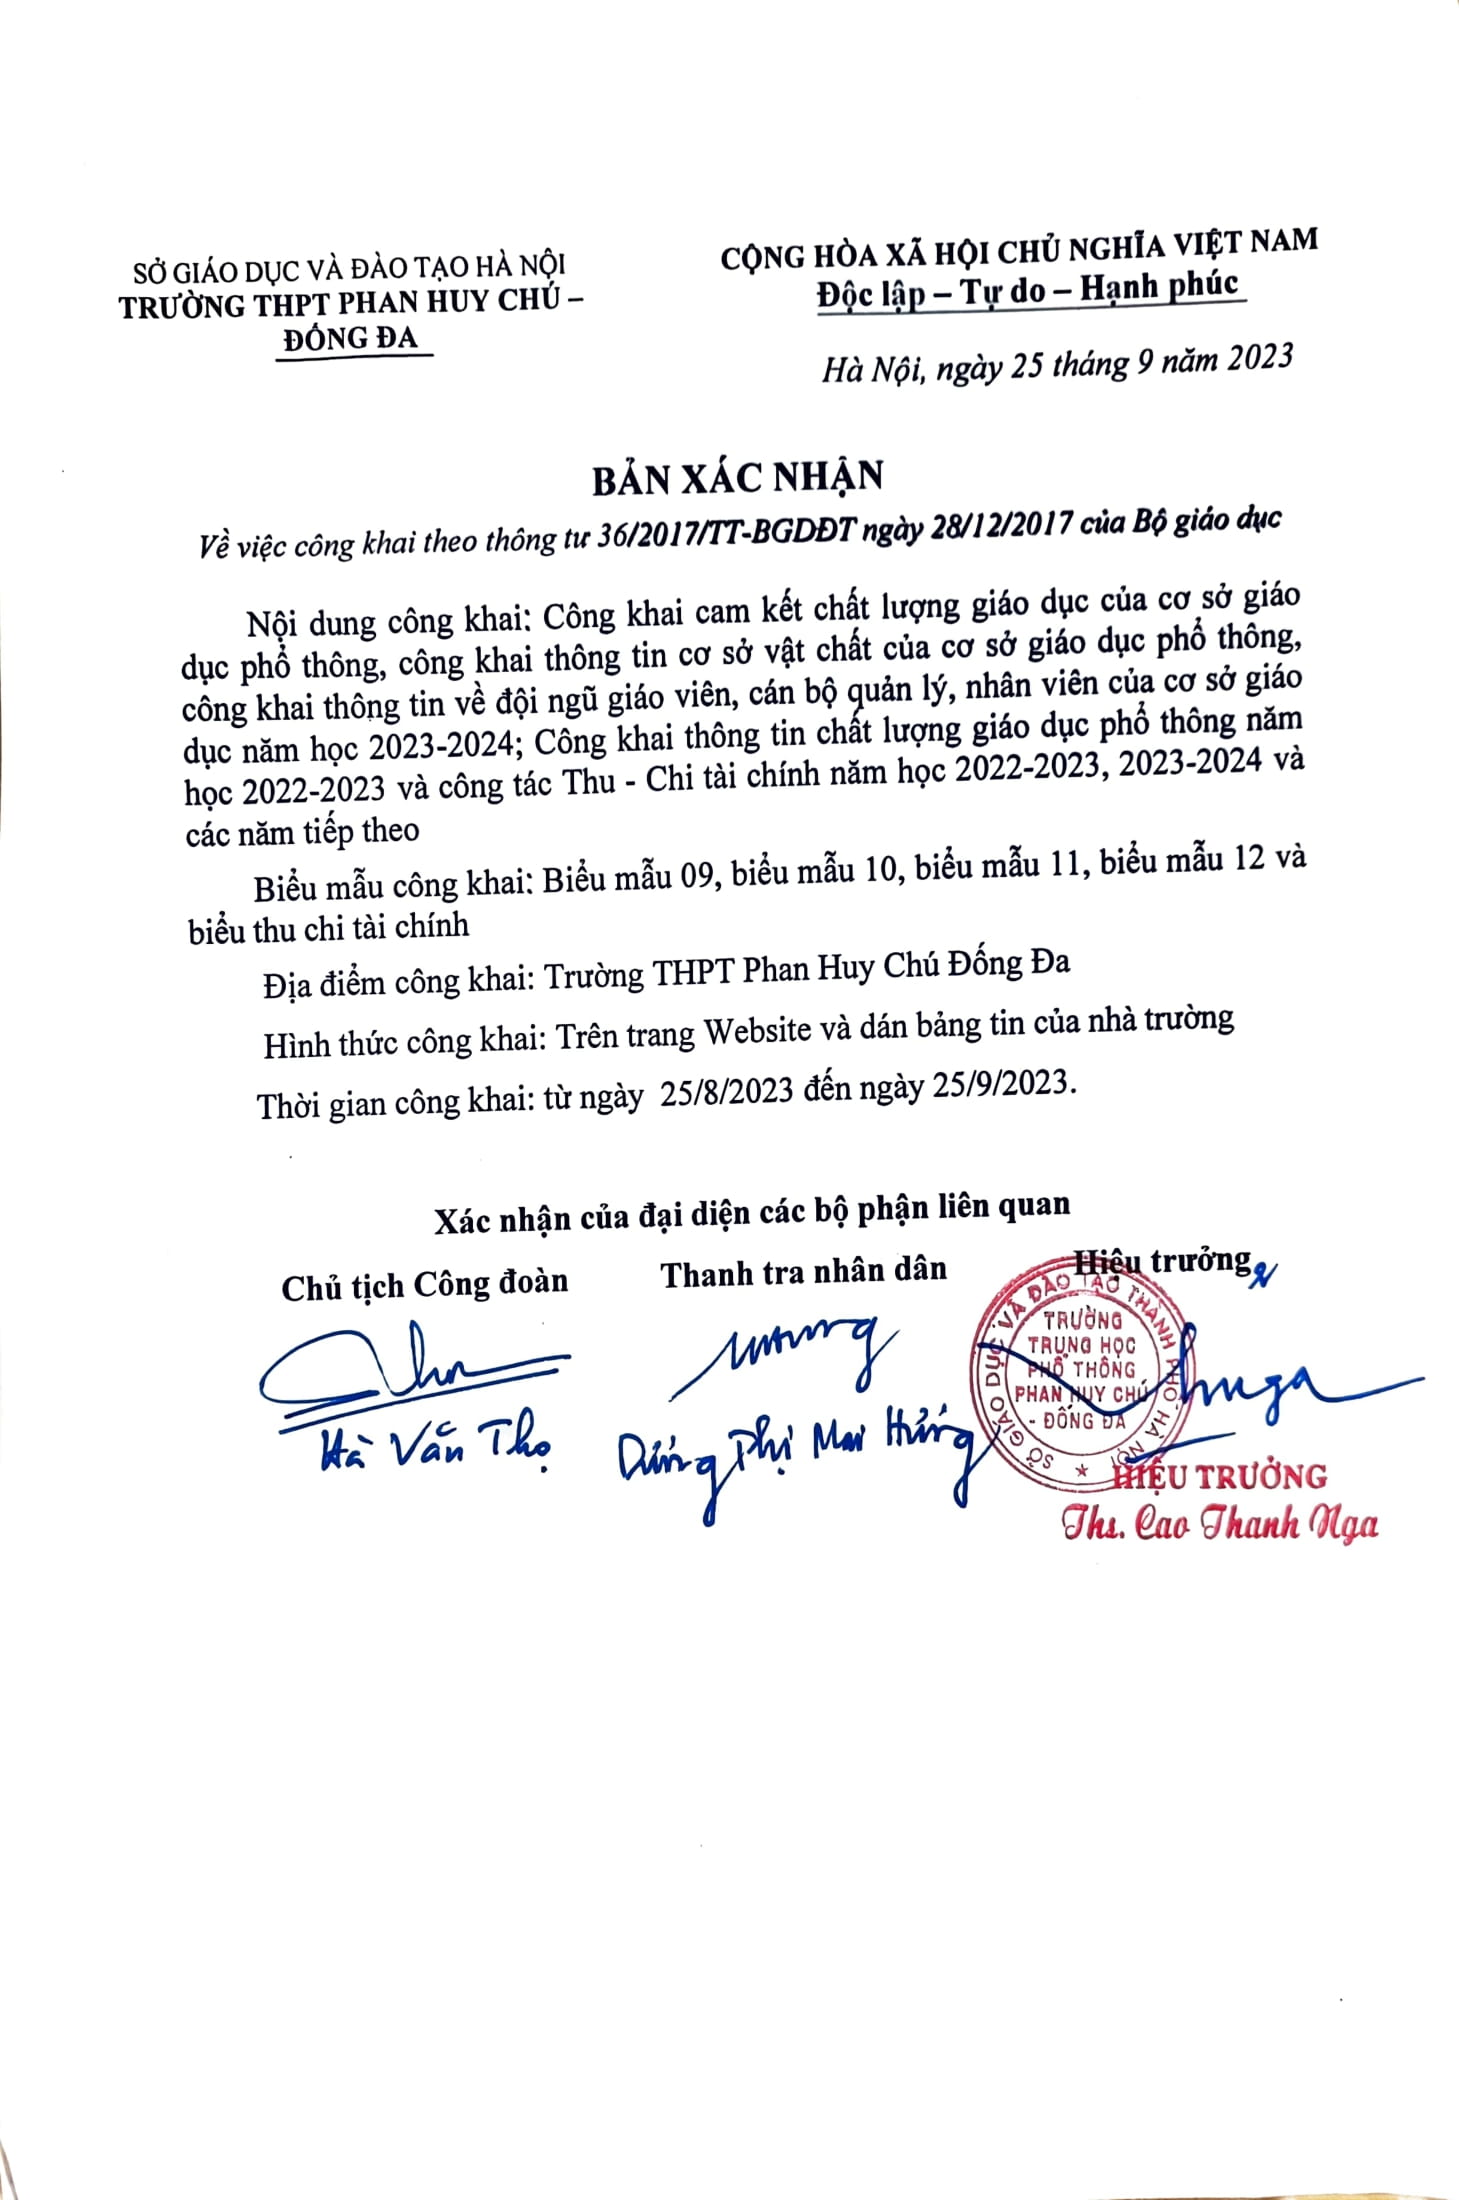 SỞ GIÁO DỤC VÀ ĐÀO TẠO HÀ NỘI
TRƯỜNG THPT PHAN HUY CHÚ –
ĐỐNG ĐA
CỘNG HÒA XÃ HỘI CHỦ NGHĨA VIỆT NAM
Độc lập – Tự do – Hạnh phúc
Hà Nội, ngày 25 tháng 9 năm 2023
BẢN XÁC NHẬN
Về việc công khai theo thông tư 36/2017/TT-BGDĐT ngày 28/12/2017 của Bộ giáo dục
Nội dung công khai: Công khai cam kết chất lượng giáo dục của cơ sở giáo
dục phổ thông, công khai thông tin cơ sở vật chất của cơ sở giáo dục phổ thông,
công khai thông tin về đội ngũ giáo viên, cán bộ quản lý, nhân viên của cơ sở giáo
dục năm học 2023-2024; Công khai thông tin chất lượng giáo dục phổ thông năm
học 2022-2023 và công tác Thu - Chi tài chính năm học 2022-2023, 2023-2024 và
các năm tiếp theo
Biểu mẫu công khai: Biểu mẫu 09, biểu mẫu 10, biểu mẫu 11, biểu mẫu 12 và
biểu thu chi tài chính
Địa điểm công khai: Trường THPT Phan Huy Chú Đống Đa
Hình thức công khai: Trên trang Website và dán bảng tin của nhà trường
Thời gian công khai: từ ngày 25/8/2023 đến ngày 25/9/2023.
Xác nhận của đại diện các bộ phận liên quan
Chủ tịch Công đoàn
Thanh tra nhân dân
Hiệu trưởng
Hà Văn Thọ
SỞ GIÁO DỤC VÀ ĐÀO TẠO THÀNH PHỐ HÀ NỘI
TRƯỜNG
TRUNG HỌC
PHỔ THÔNG
PHAN HUY CHÚ
- ĐỐNG ĐA
HIỆU TRƯỞNG
Ths. Cao Thanh Nga